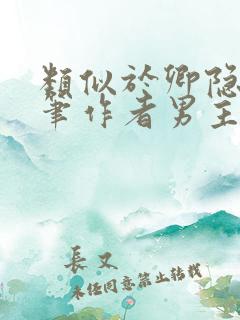 類似於卿隐
筆作者男主
長又
未经同意禁止转载